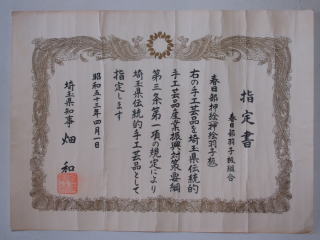 指定書
春日部羽子板組合
春日部押絵羽子板
右の手工芸品を埼玉県伝統的
手工芸品産業振興対策要綱
第三条第一項の規定により
埼玉県伝統的手工芸品として
指定します
昭和五十三年四月一日
埼玉県知事 畑 和